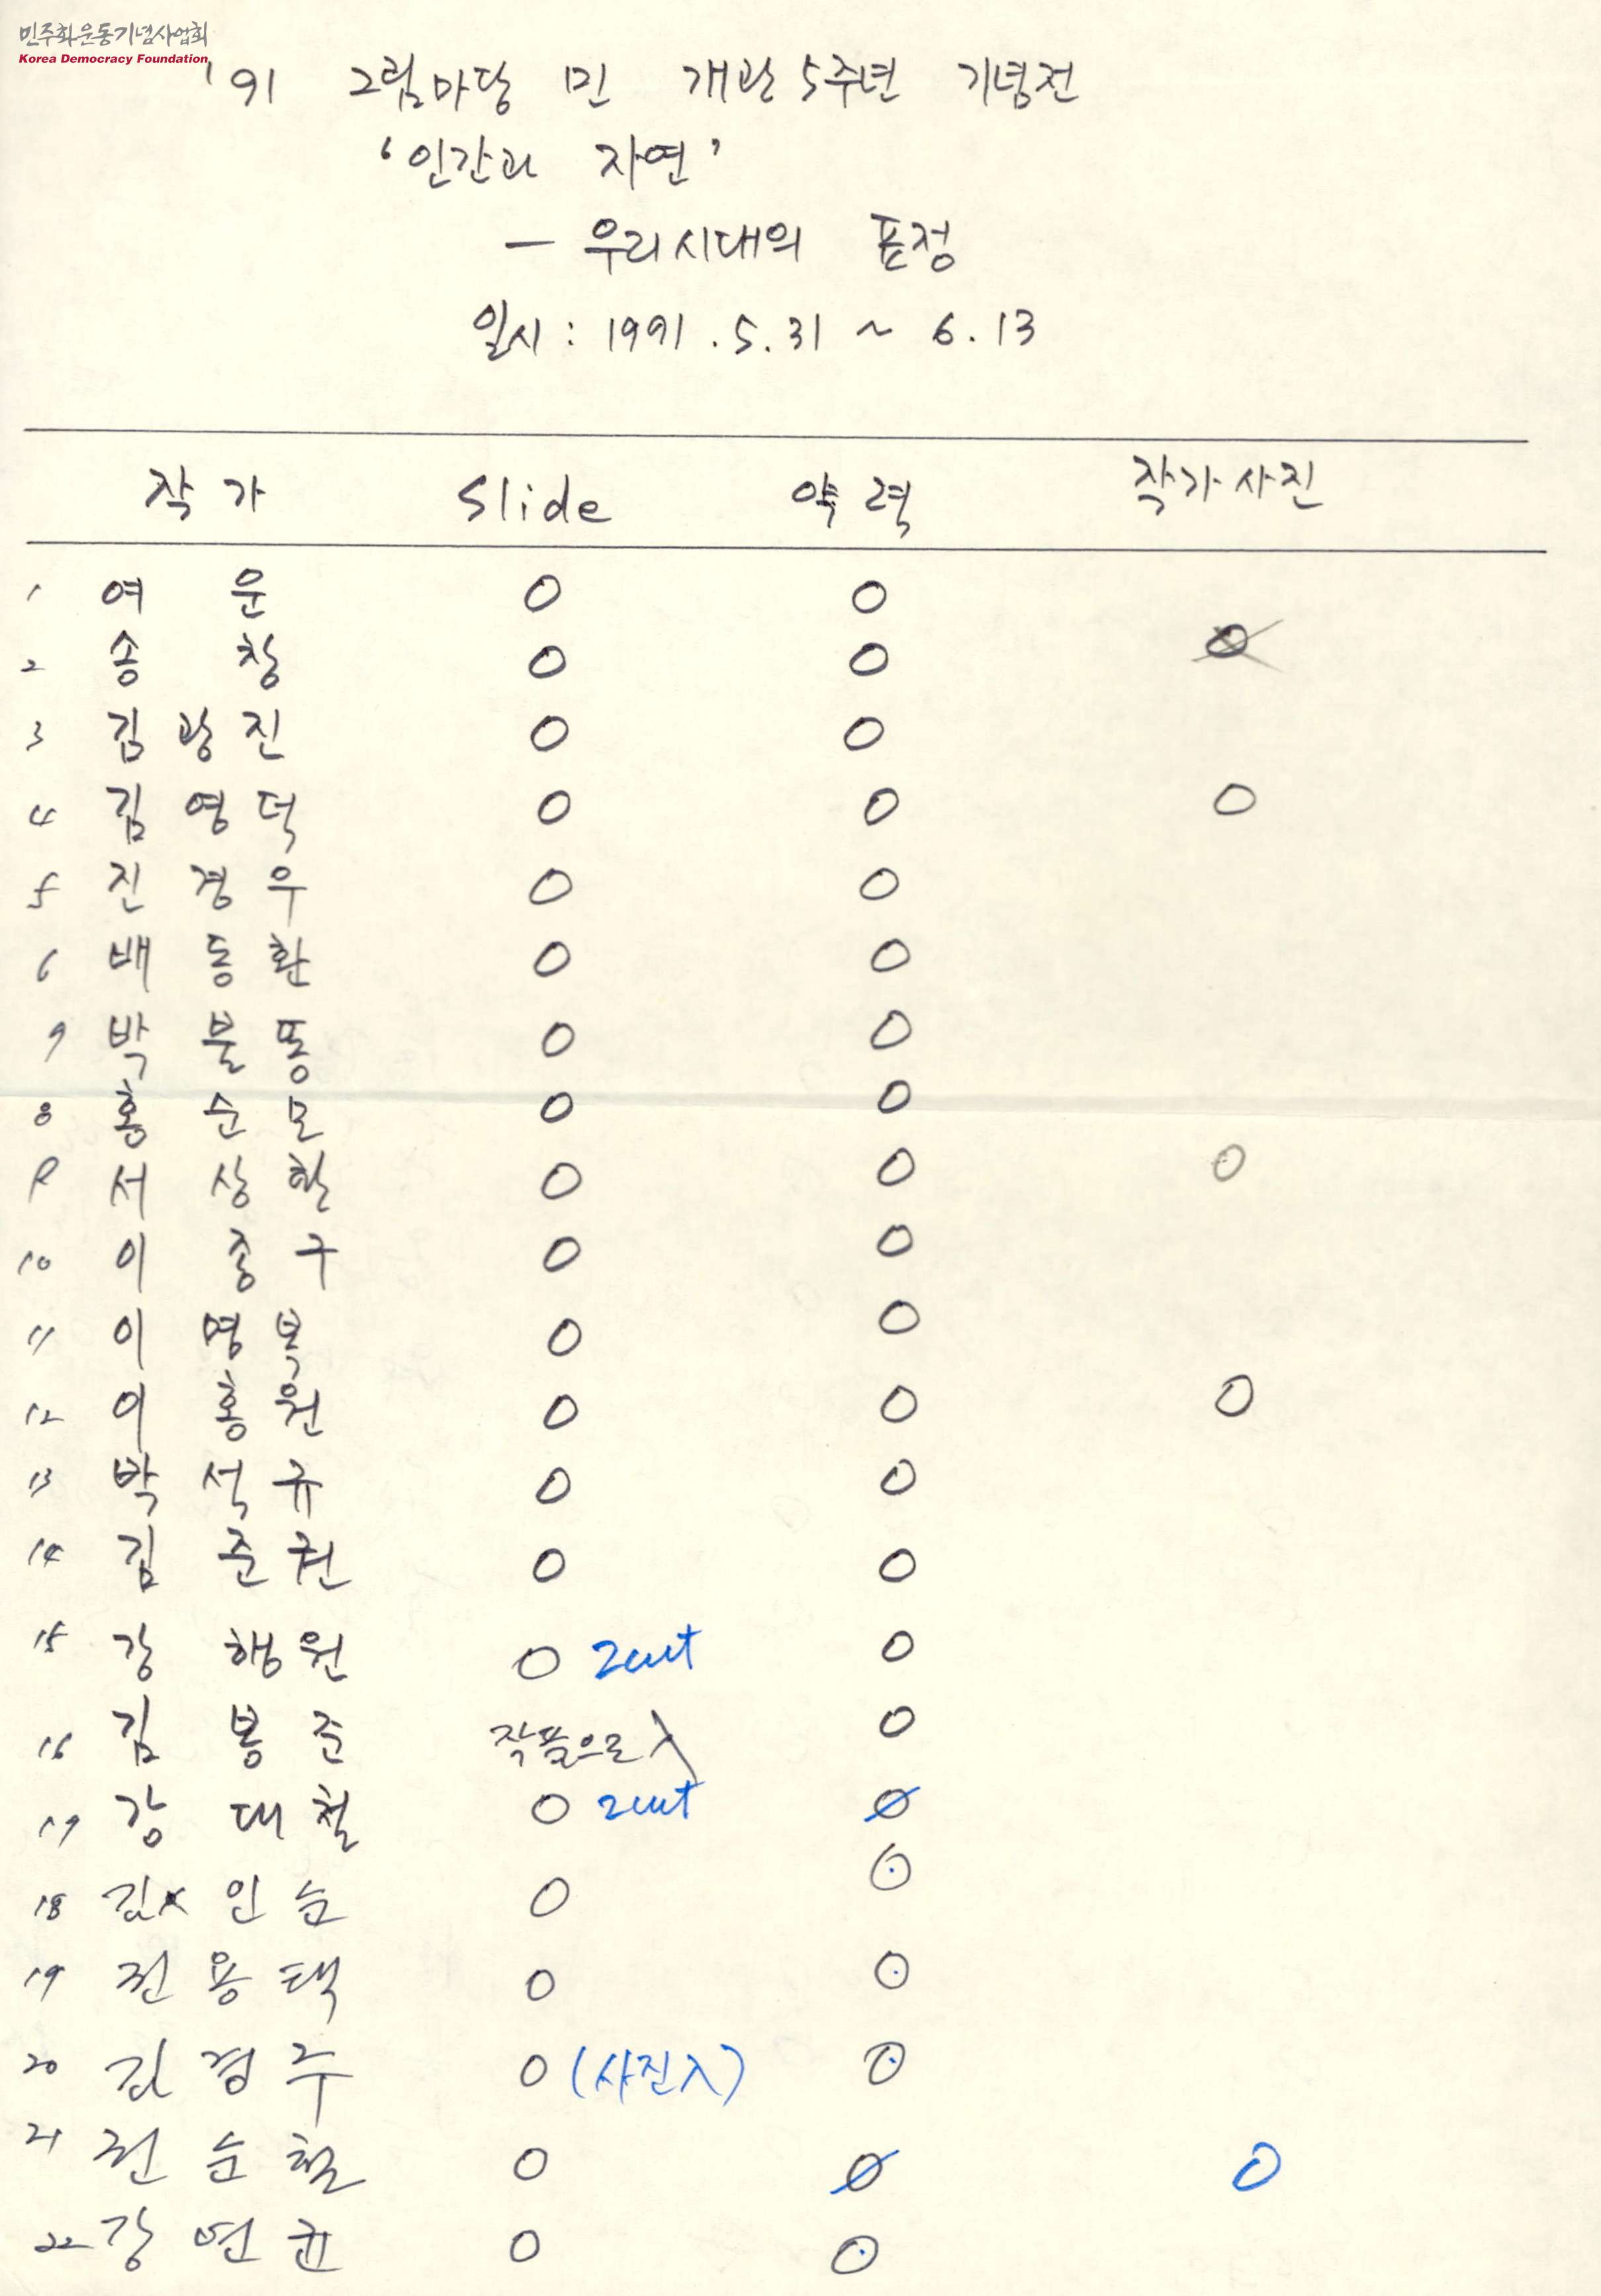 민주화운동기념사업회
Korea Democracy Foundation
'91 그림마당 민 개관5주년 기념전
'인간과 자연'
— 우리시대의 표정
일시 : 1991 . 5. 31 ~ 6. 13
작가 Slide 약력 작가사진
1 여 운 O O
2 송 창 O O O
3 김광진 O O
4 김영덕 O O O
5 진경우 O O
6 배동환 O O
7 박불똥 O O
8 홍순모 O O
9 서상환 O O O
10 이종구 O O
11 이명복 O O
12 이홍원 O O O
13 박석규 O O
14 김준권 O O
15 강행원 O 2cut O
16 김봉준 작품으로 入 O
17 강대철 O 2cut O
18 김인순 O O
19 전용택 O O
20 김경주 O (사진入) O
21 전순철 O O O
22 강연균 O O